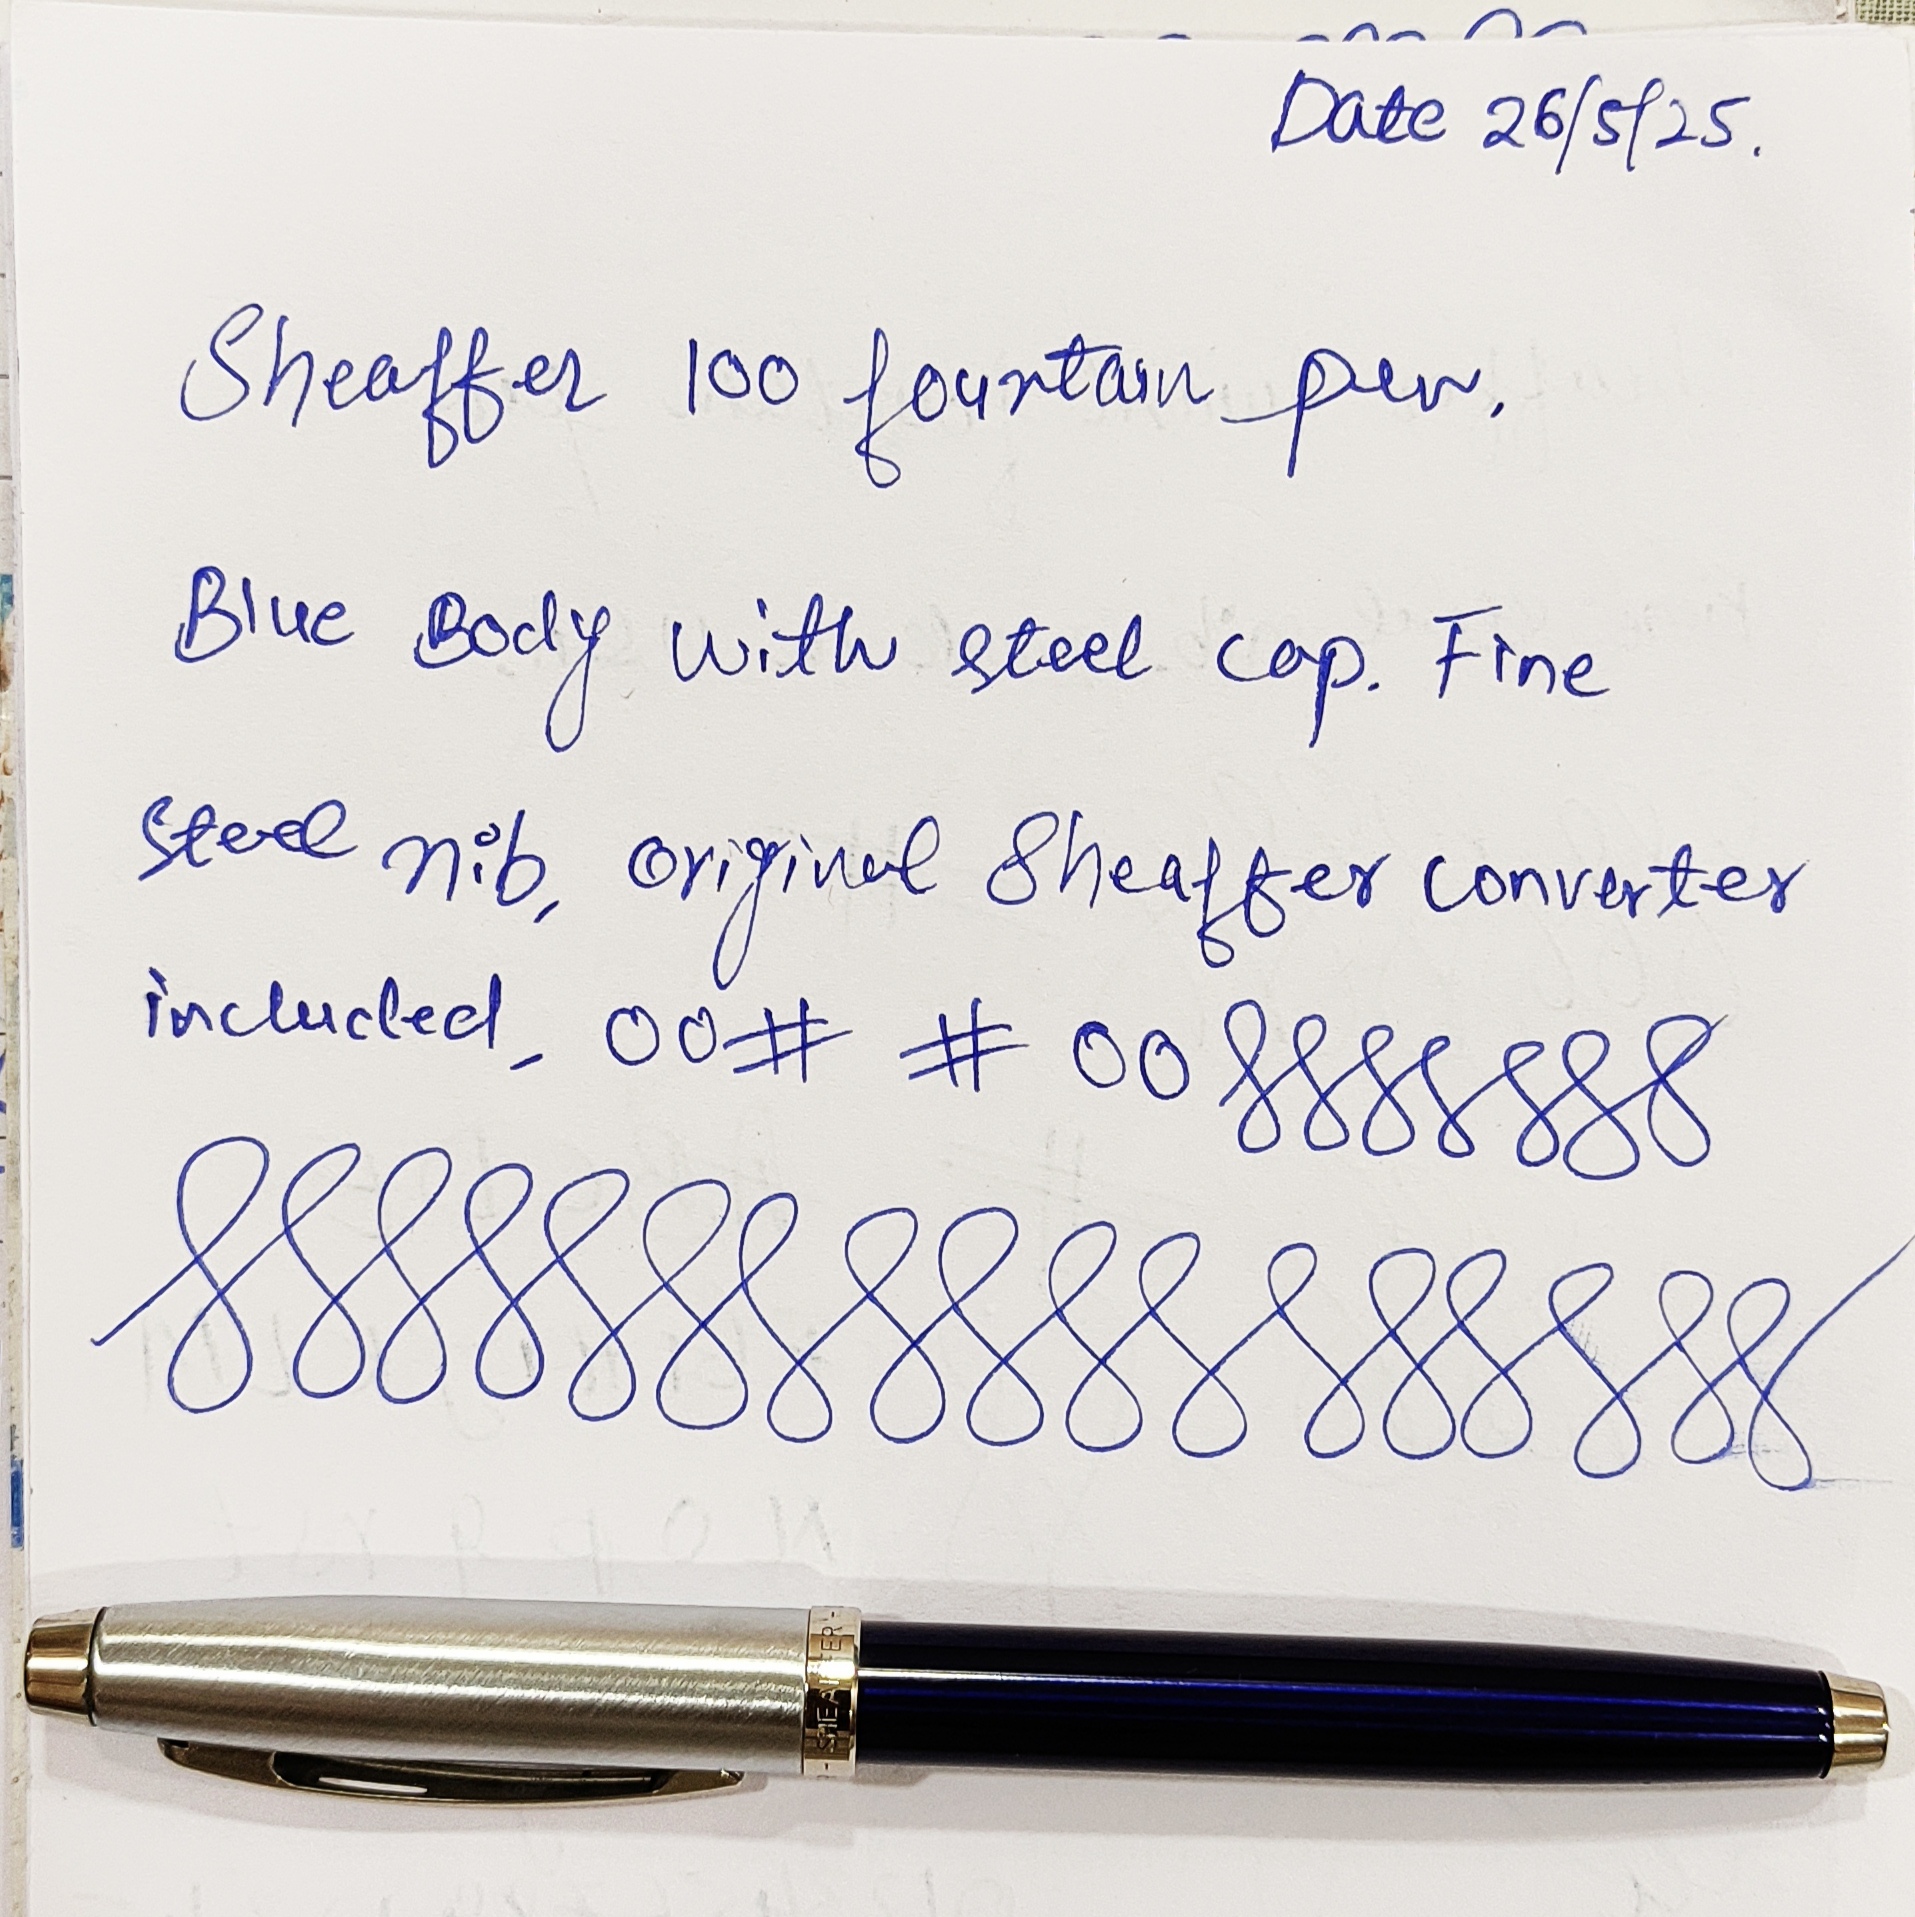 Date 26/5/25.
Sheaffer 100 fountain pen.
Blue Body with steel cap. Fine
steel nib, original Sheaffer converter
included, 00# # 00
SHEAFFER